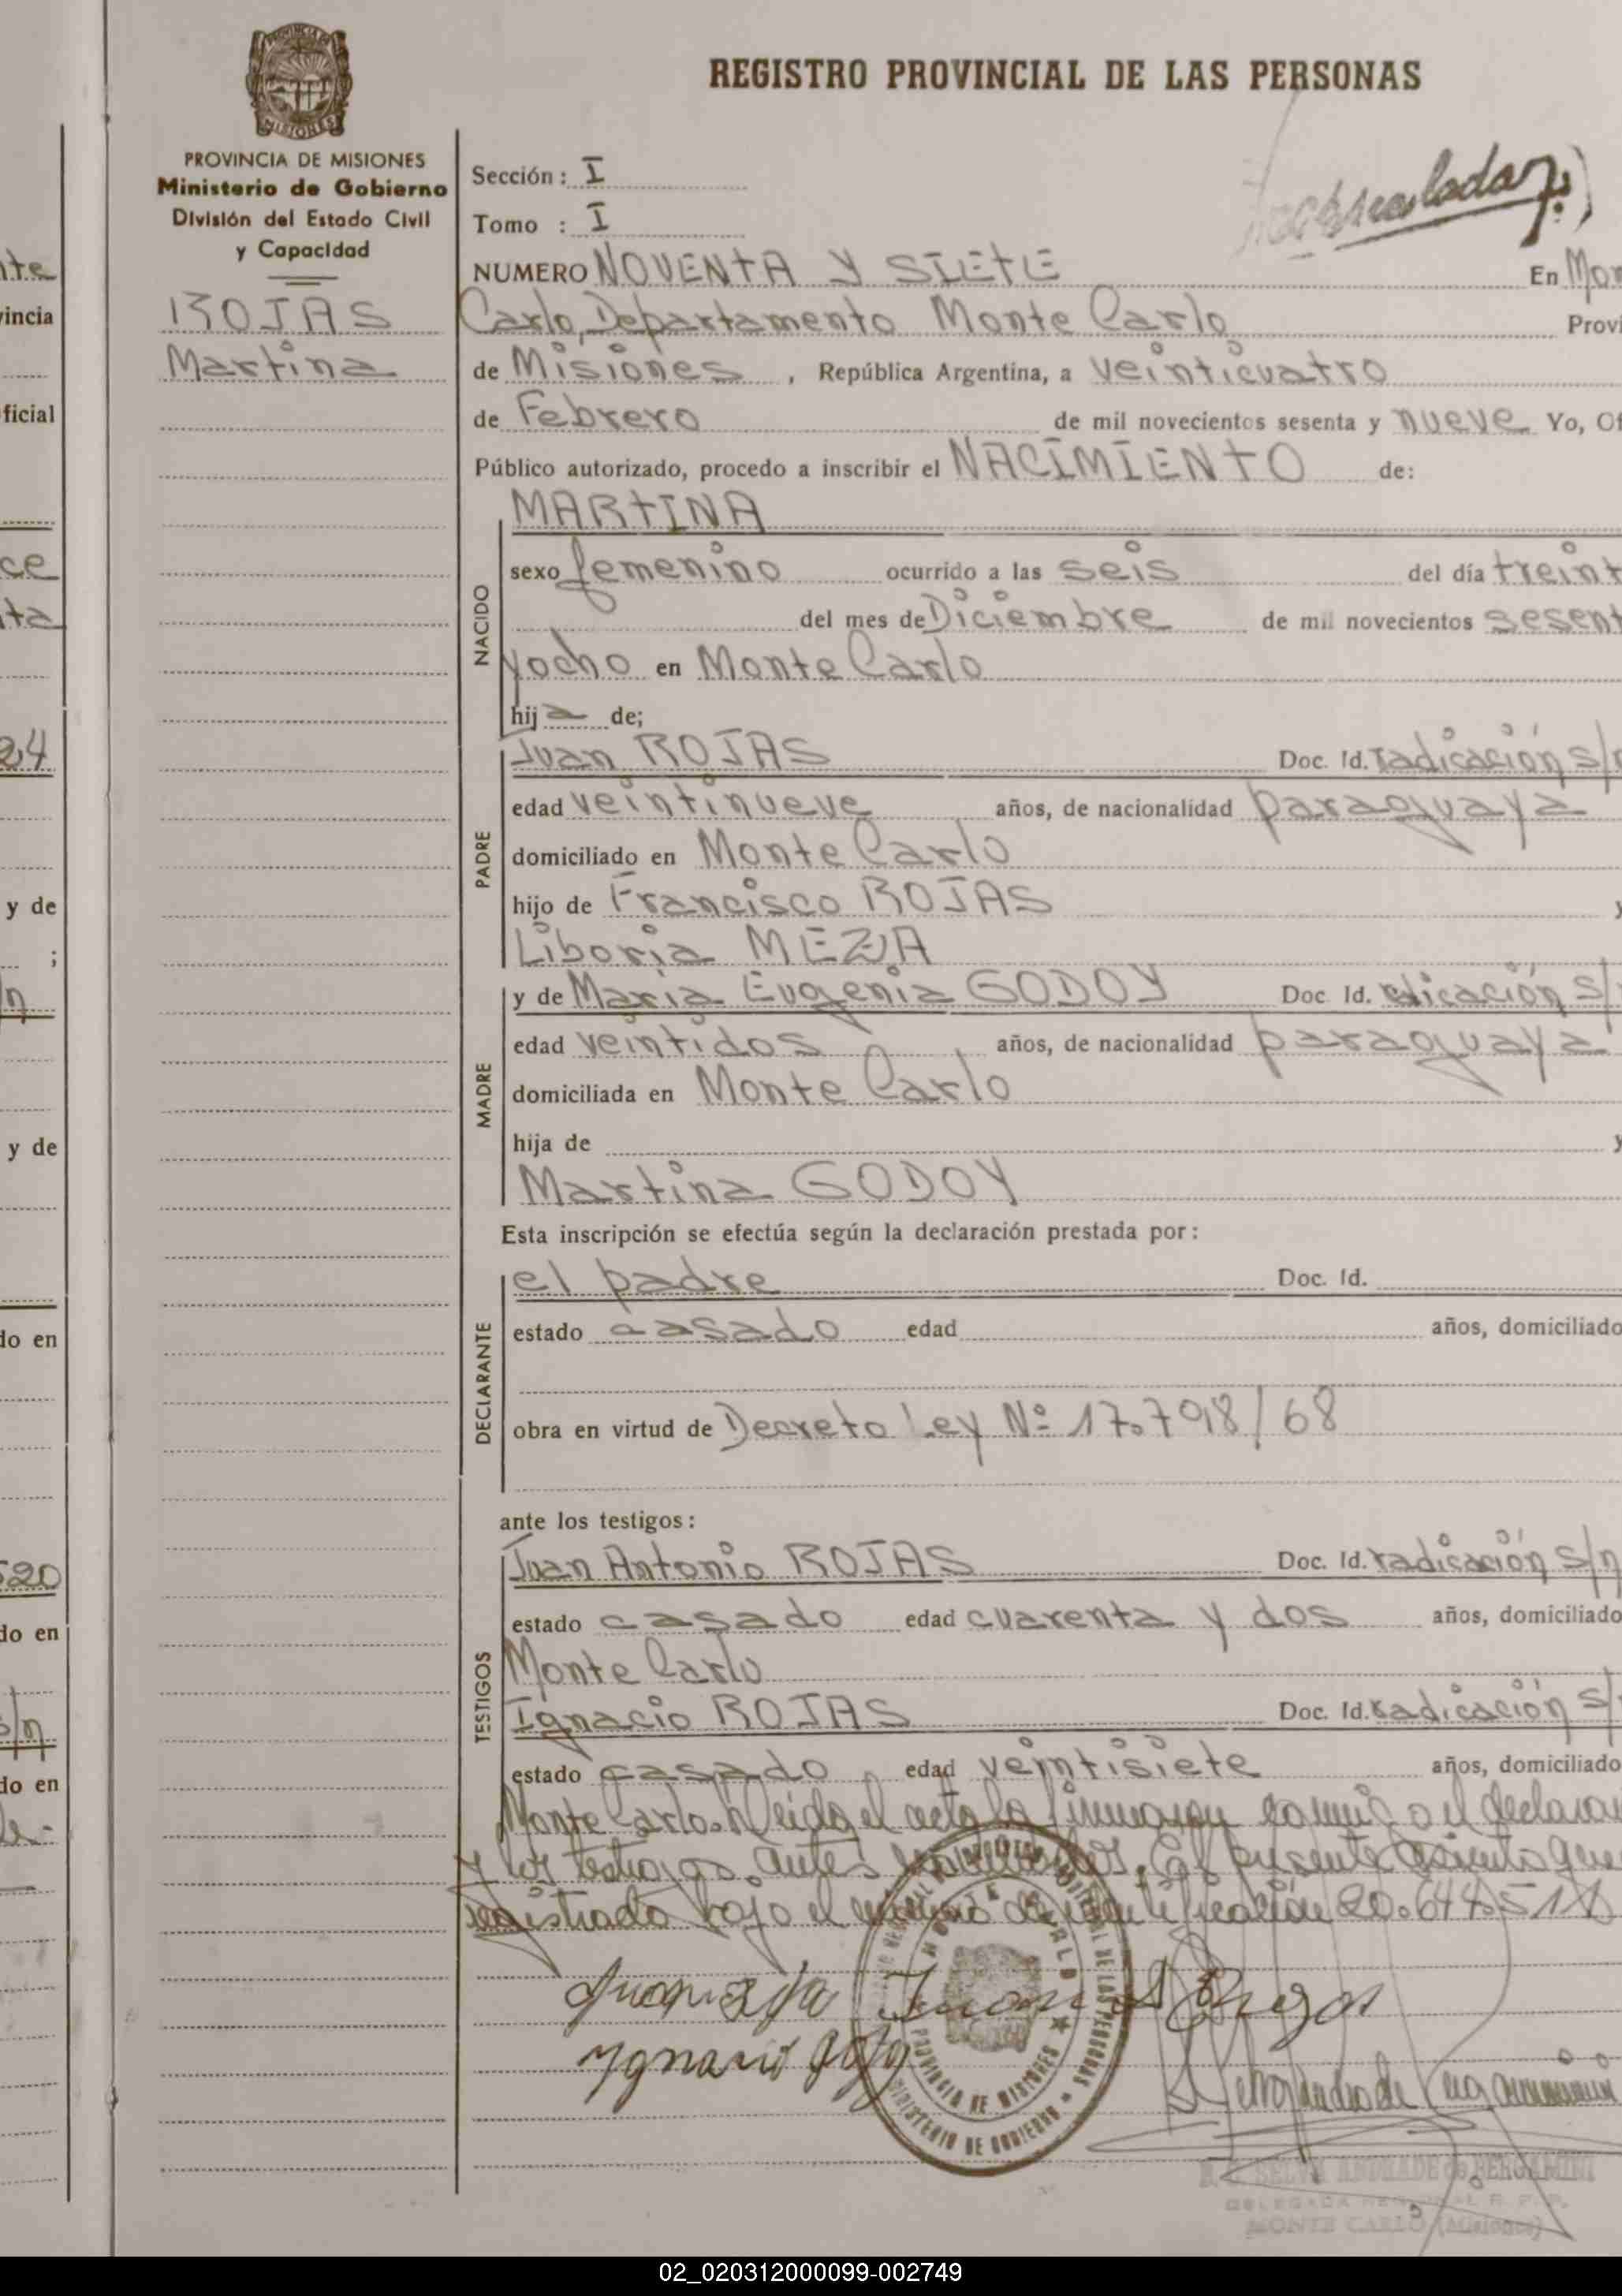 REGISTRO PROVINCIAL DE LAS PERSONAS
MISIONES
PROVINCIA DE MISIONES
Ministerio de Gobierno
División del Estado Civil
y Capacidad
ROJAS
Martina
Sección: I
Tomo : I
NUMERO NOVENTA Y SIETE En Mon
Carlo, Departamento Monte Carlo Provi
de Misiones, República Argentina, a veinticuatro
de Febrero de mil novecientos sesenta y nueve Yo, Of
Público autorizado, procedo a inscribir el NACIMIENTO de:
NACIDO
MARTINA
sexo femenino ocurrido a las seis del día treint
del mes de Diciembre de mil novecientos sesent
yocho en Monte Carlo
hija de;
PADRE
Juan ROJAS Doc. Id. radicación s/n
edad veintinueve años, de nacionalidad paraguaya
domiciliado en Monte Carlo
hijo de Francisco ROJAS y
Liboria MEZA
MADRE
y de Maria Eugenia GODOY Doc Id. radicación s/
edad veintidos años, de nacionalidad paraguaya
domiciliada en Monte Carlo
hija de y
Martina GODOY
Esta inscripción se efectúa según la declaración prestada por:
DECLARANTE
el padre Doc. Id.
estado casado edad años, domiciliado
obra en virtud de Decreto Ley Nº 17.798/68
ante los testigos:
TESTIGOS
Juan Antonio ROJAS Doc. Id. radicación s/n
estado casado edad cuarenta y dos años, domiciliado
Monte Carlo
Ignacio ROJAS Doc. Id. radicación s/
estado casado edad veintisiete años, domiciliado
Monte Carlo. Leida el acta la firmaron conmigo el declaran
y los testigos antes nombrados. El presente asiento que
registrado bajo el número de identificación 20.644.511
Juan
Ygnacio
MONTE CARLO
PROVINCIA DE MISIONES
MINISTERIO DE GOBIERNO
SELVA ANDRADE de BERGAMINI
DELEGADA REGIONAL R. P. P.
MONTE CARLO (Misiones)
nte
vincia
ficial
ce
ta
24
y de
;
n
y de
do en
520
do en
s/n
do en
02_020312000099-002749